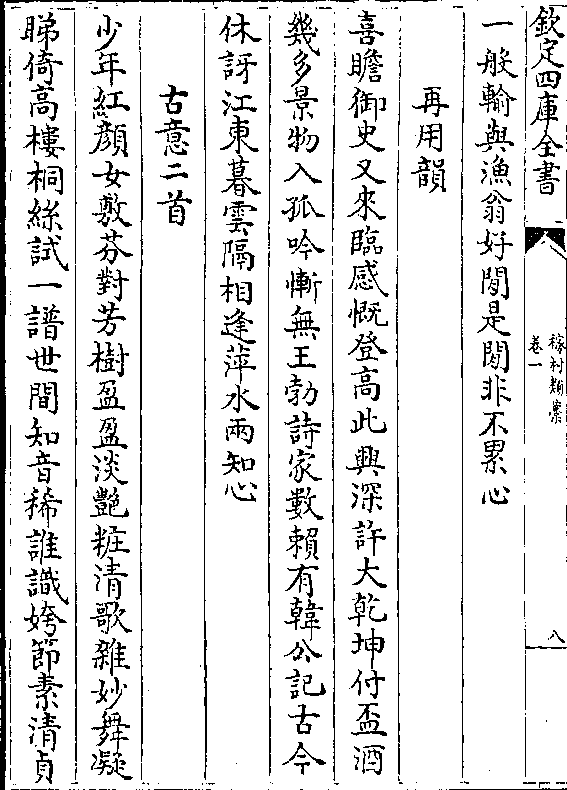 欽定四庫全書
稼村類藁
卷一
八
一般輸與漁翁好閒是閒非不累心
再用韻
喜瞻御史又來臨感慨登高此興深許大乾坤付盃酒
幾多景物入孤吟慚無王勃詩家數賴有韓公記古今
休訝江東暮雲隔相逢萍水兩知心
古意二首
少年紅顔女敷芬對芳樹盈盈淡艷粧清歌雜妙舞凝
睇倚高樓桐絲試一譜世間知音稀誰識姱節素清貞